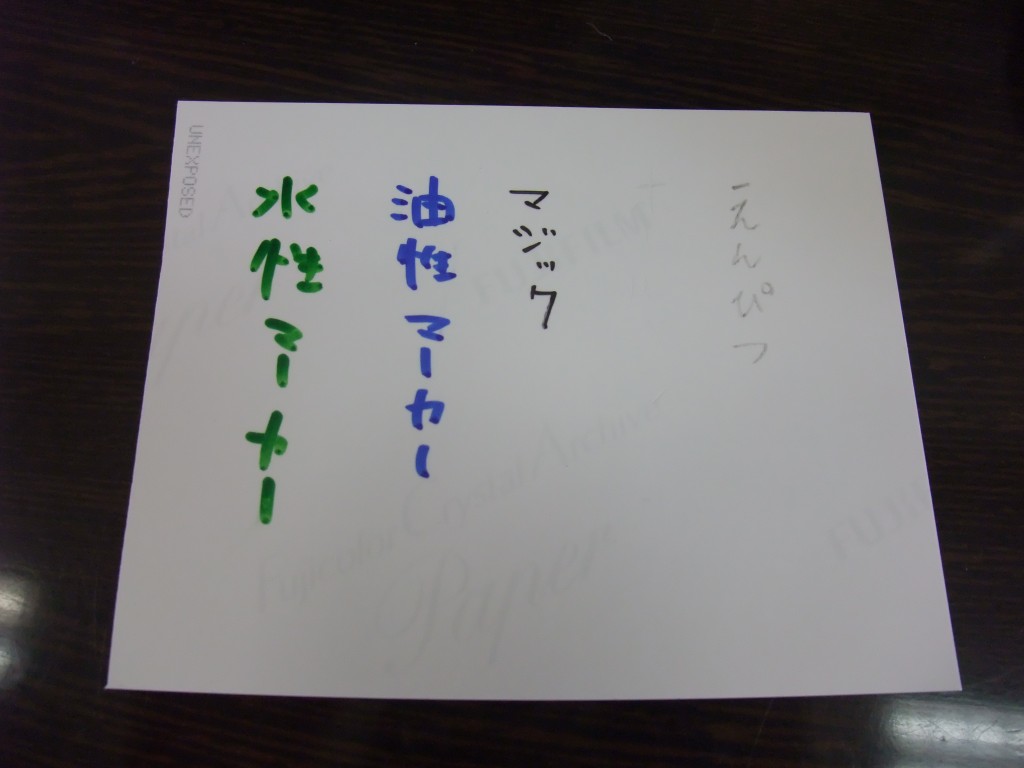 えんぴつ
マジック
油性マーカー
水性マーカー
UNEXPOSED
FUJIFILM
Fujicolor Crystal Archive
Paper
FUJI